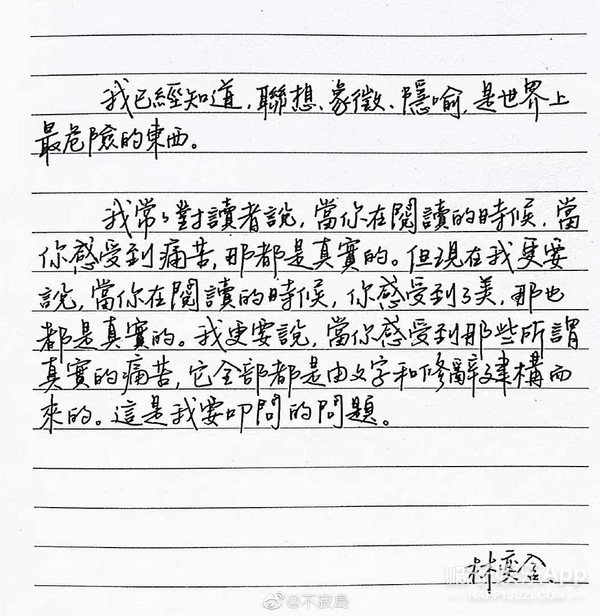 我已經知道，聯想、象徵、隱喻，是世界上
最危險的東西。
我常々對讀者說，當你在閱讀的時候，當
你感受到痛苦，那都是真實的。但現在我更要
說，當你在閱讀的時候，你感受到了美，那也
都是真實的。我更要說，當你感受到那些所謂
真實的痛苦，它全部都是由文字和修辭建構而
來的。這是我要叩問的問題。
林奕含
App
HAPPYJUZI.COM
@不寂島